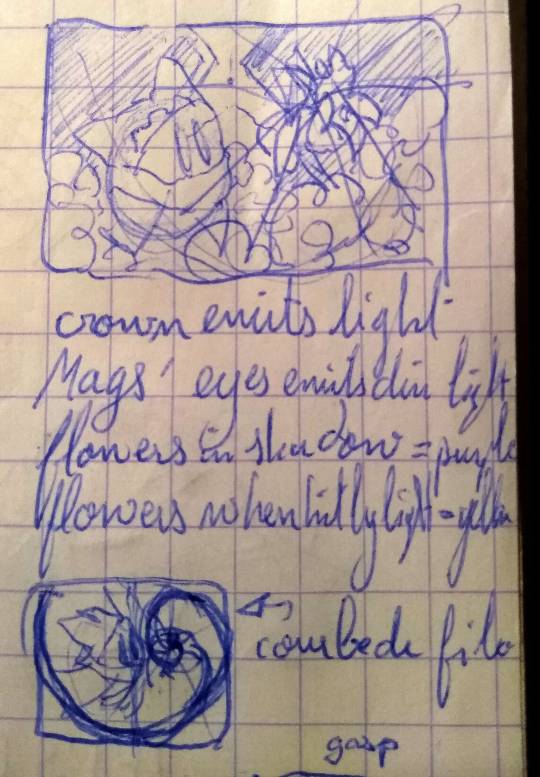 crown emits light
Mags' eyes emits dim light
flowers in shadow = purple
flowers when hit by light = yellow
courbe de fibo
gasp